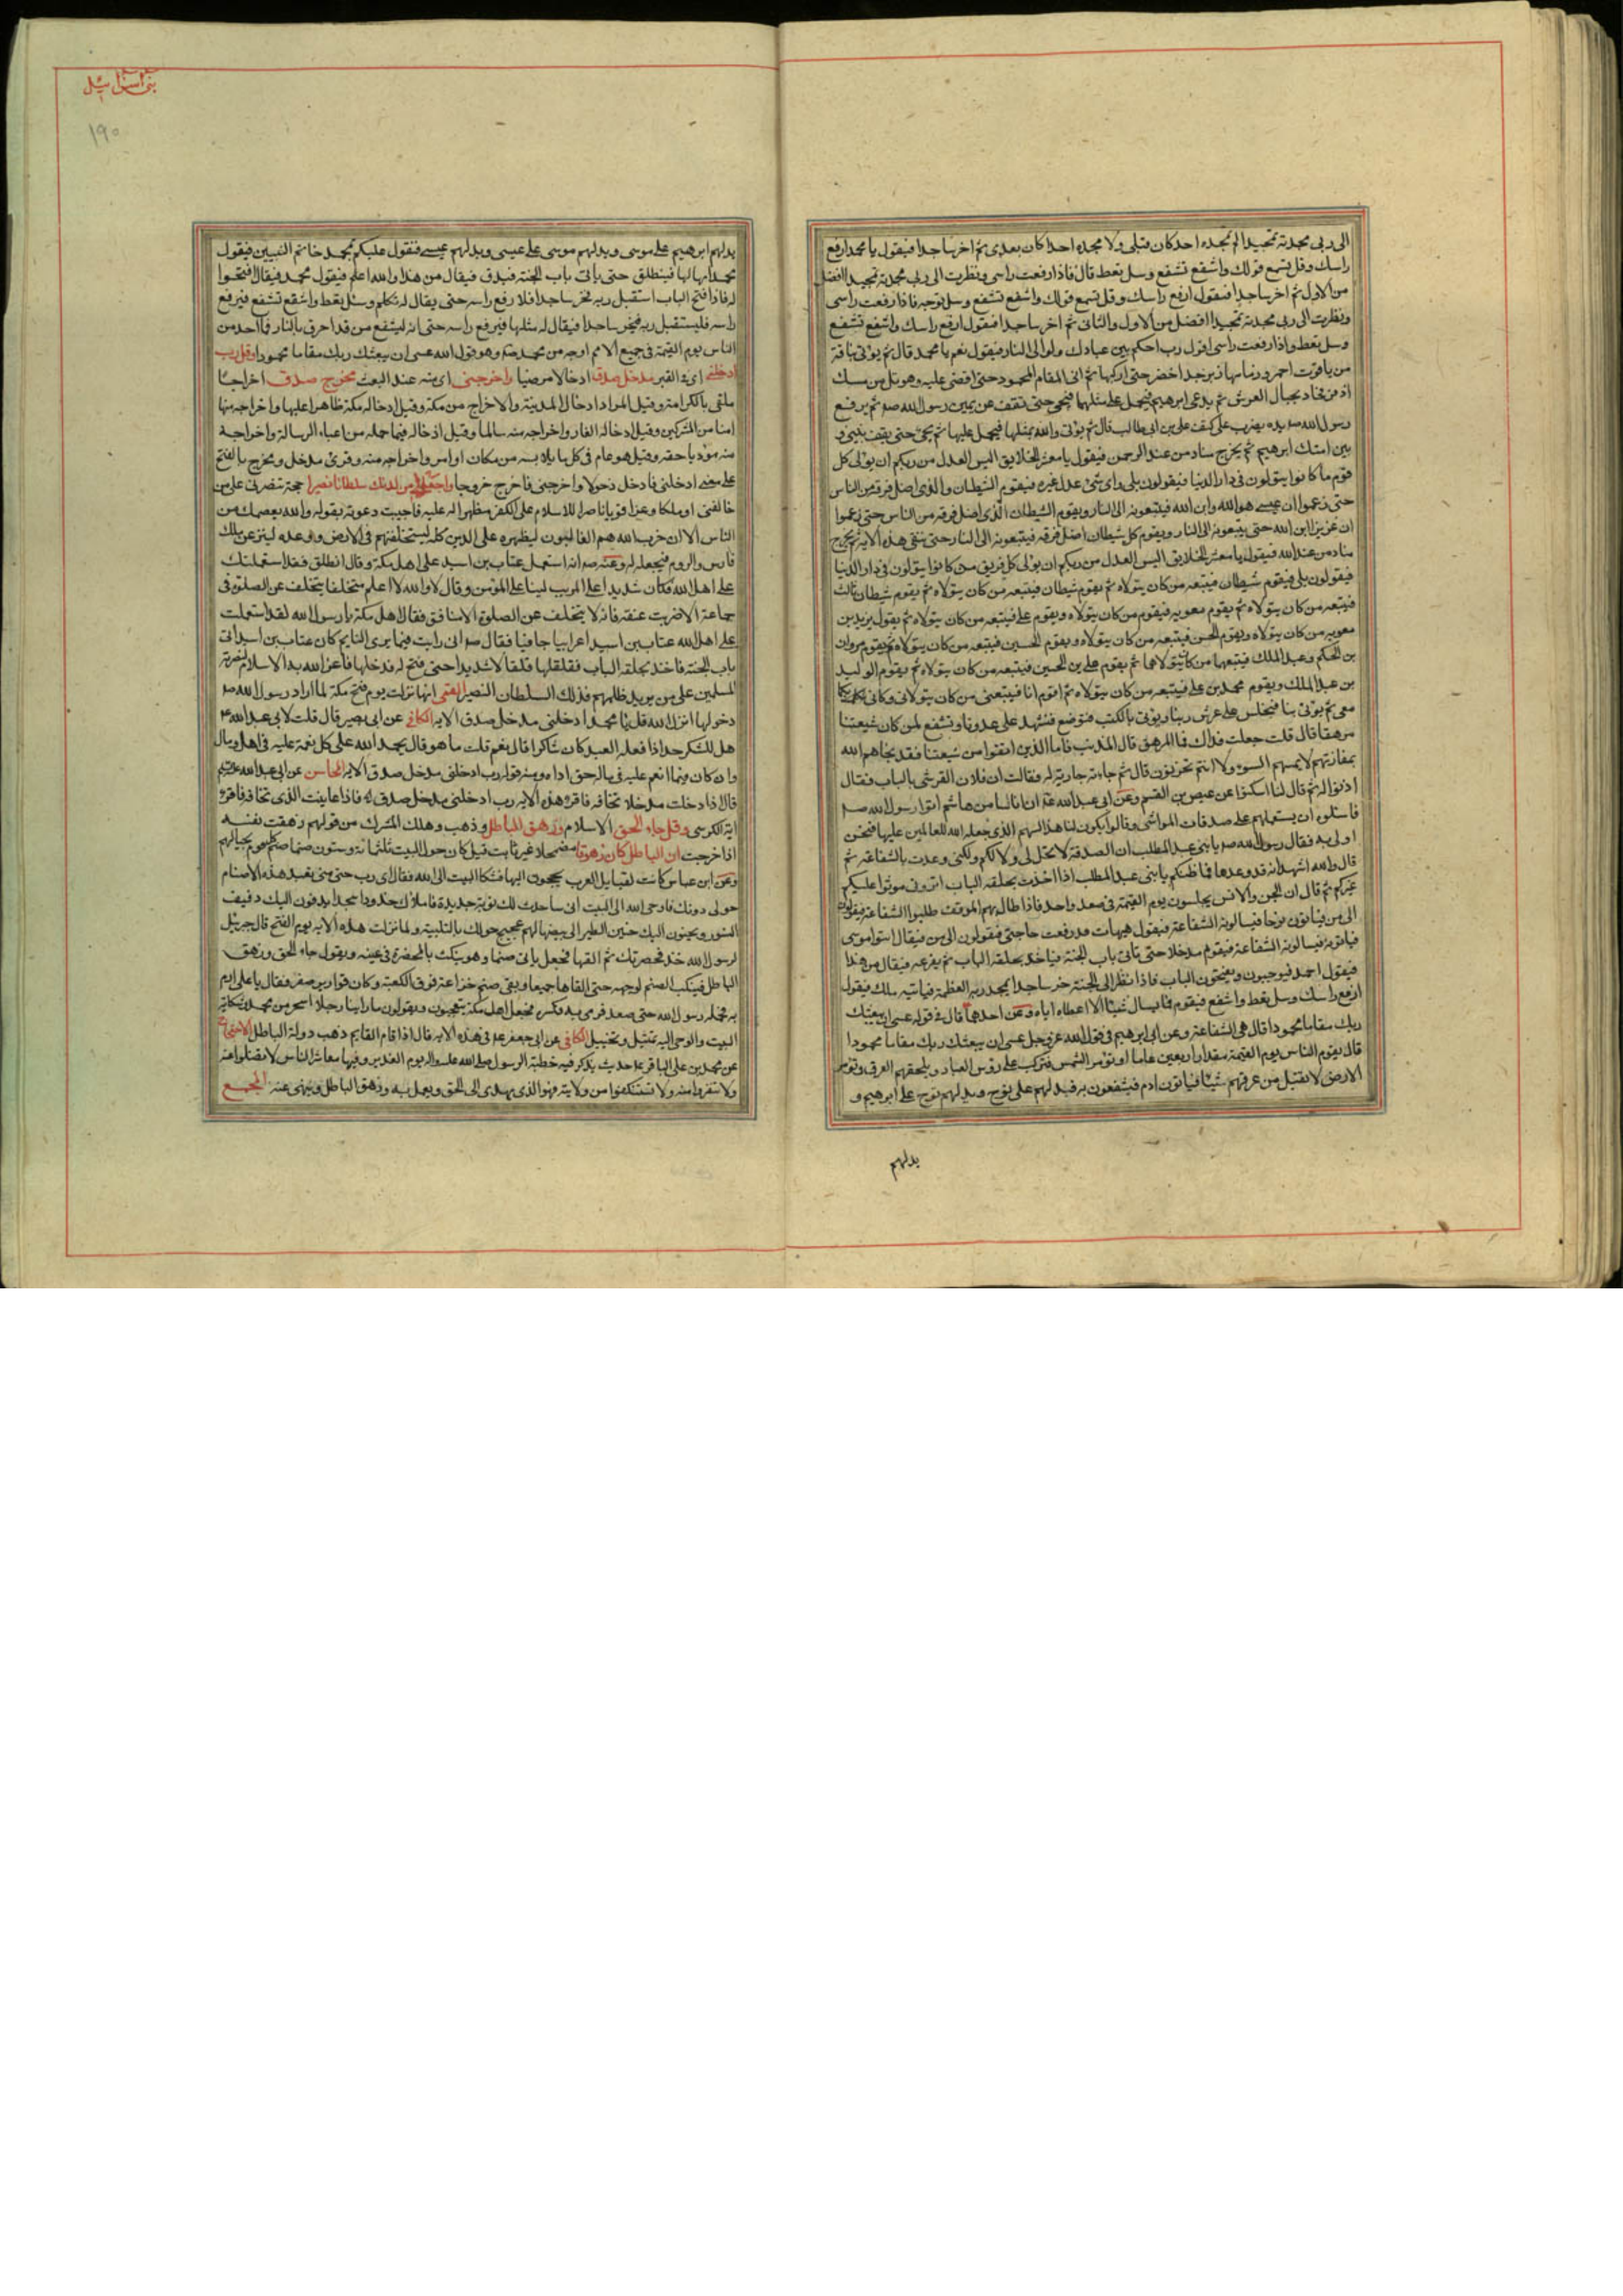 الى ربى مجدته تمجيدا لم يمجده احد كان قبلى ولا يمجده احد كان بعدى ثم اخر ساجدا فيقول يا محمد ارفع
راسك وقل تسمع قولك واشفع تشفع وسل تعط قال فاذا رفعت راسى ونظرت الى ربى مجدته تمجيدا افضل
من الاول ثم اخر ساجدا فيقول ارفع راسك وقل تسمع قولك واشفع تشفع وسل توجه فاذا رفعت راسى
ونظرت الى ربى مجدته تمجيدا افضل من الاول والثانى ثم اخر ساجدا فيقول ارفع راسك واشفع تشفع
وسل تعط واذا رفعت راسى اقول رب احكم بين عبادك ولو الى النار فيقول نعم يا محمد قال ثم يؤتى بناقة
من ياقوت احمر وزمامها زبرجد اخضر حتى اركبها ثم اتى المقام المحمود حتى اقضى عليه وهو تل من مسك
اذفر بحيال العرش ثم يدعى ابرهيم فيحمل على مثلها فيجى حتى يقف عن يمين رسول الله صم ثم يرفع
رسول الله صم يده يضرب على كتف على بن ابى طالب قال ثم يؤتى والله بمثلها فيحمل عليها ثم يجئ حتى يقف بينى و
بين ابيك ابرهيم ثم يخرج مناد من عند الرحمن فيقول يا معشر الخلايق اليس العدل من ربكم ان يولى كل
قوم ما كانوا يتولون فى دار الدنيا فيقولون بلى واى شئ عدل غيره فيقوم الشيطان الذى اضل فرقة من الناس
حتى زعموا ان عيسى هو الله وابن الله فيتبعونه الى النار ويقوم الشيطان الذى اضل فرقة من الناس حتى زعموا
ان عزير ابن الله حتى يتبعونه الى النار ويقوم كل شيطان اضل فرقة فيتبعونه الى النار حتى تبقى هذه الامة ثم يخرج
مناد من عند الله فيقول يا معشر الخلايق اليس العدل من ربكم ان يولى كل فريق من كانوا يتولون فى دار الدنيا
فيقولون بلى فيقوم شيطان فيتبعه من كان يتولاه ثم يقوم شيطان فيتبعه من كان يتولاه ثم يقوم شيطان ثالث
فيتبعه من كان يتولاه ثم يقوم معويه فيقوم من كان يتولاه ويقوم على فيتبعه من كان يتولاه ثم يقول يزيد بن
معويه من كان يتولاه ويقوم الحسن فيتبعه من كان يتولاه ويقوم الحسين فيتبعه من كان يتولاه ثم يقوم مروان
بن الحكم وعبد الملك فيتبعهما من كان يتولاهما ثم يقوم على بن الحسين فيتبعه من كان يتولاه ثم يقوم الوليد
بن عبد الملك ويقوم محمد بن على فيتبعه من كان يتولاه ثم اقوم انا فيتبعنى من كان يتولانى وكانى بكما
معى ثم يؤتى بنا فيجلس على عرش ربنا ويؤتى بالكتب فتوضع فنشهد على عدونا ونشفع لمن كان شيعتنا
مرهقا قال قلت جعلت فداك فما المرهق قال المذنب فاما الذين اتقوا من شيعتنا فقد نجاهم الله
بمفازتهم لا يمسهم السوء ولا هم يحزنون قال ثم جاءته جارية له فقالت ان فلان القرشى بالباب فقال
اذنوا له ثم قال لنا اسكتوا عن عيص بن القسم وعن ابى عبد الله ان اناسا من بنى هاشم اتوا رسول الله صم
فاسئلوه ان يستعملهم على صدقات المواشى وقالوا يكون لنا هذا السهم الذى جعله الله للعاملين عليها فنحن
اولى به فقال رسول الله صم يا بنى عبد المطلب ان الصدقة لا تحل لى ولا لكم ولكنى وعدت بالشفاعة ثم
قال والله اشهد انه قد وعدها فما ظنكم يا بنى عبد المطلب اذا اخذت بحلقة الباب اترونى موثرا عليكم
غيركم ثم قال ان الجن والانس يجلسون يوم القيمة فى صعيد واحد فاذا طال بهم الموقف طلبوا الشفاعة فيقولون
الى من فياتون نوحا فيسالونه الشفاعة فيقول هيهات قد رفعت حاجتى فيقولون الى من فيقال ائتوا موسى
فياتونه فيسالونه الشفاعة فيقوم مدخلا حتى ياتى باب الجنة فياخذ بحلقة الباب ثم يقرعه فيقال من هذا
فيقول احمد فيرحبون ويفتحون الباب فاذا نظر الى الجنة خر ساجدا يمجد ربه العظمة فياتيه ملك فيقول
ارفع راسك وسل تعط واشفع فيقوم فما يسال شيئا الا اعطاه اياه وعن احدهما قال فى قوله عسى ان يبعثك
ربك مقاما محمودا قال هى الشفاعة وعن ابى ابرهيم فى قول الله عز وجل عسى ان يبعثك ربك مقاما محمودا
قال يقوم الناس يوم القيمة مقدار اربعين عاما وتؤمر الشمس فتركب على رؤس العباد ويلجمهم العرق وتؤمر
الارض لا تقبل من عرقهم شيئا فياتون ادم فيشفعون به فيدلهم على نوح ويدلهم نوح على ابرهيم و
يدلهم
بنى اسرائيل
١٩٠
يدلهم ابرهيم على موسى ويدلهم موسى على عيسى ويدلهم عيسى فيقول عليكم بمحمد خاتم النبيين فيقول
محمد انا لها فينطلق حتى ياتى باب الجنة فيدق فيقال من هذا والله اعلم فيقول محمد فيقال افتحوا
له فاذا فتح الباب استقبل ربه فخر ساجدا فلا يرفع راسه حتى يقال له تكلم وسئل تعط واشفع تشفع فيرفع
راسه فليستقبل ربه فيخر ساجدا فيقال له مثلها فيرفع راسه حتى انه ليشفع من قد احرق بالنار فما احد من
الناس يوم القيمة فى جميع الامم اوجه من محمد صم وهو قول الله عسى ان يبعثك ربك مقاما محمودا وقل رب
ادخلنى اى فى القبر مدخل صدق ادخالا مرضيا واخرجنى اى منه عند البعث مخرج صدق اخراجا
ملقى بالكرامة وقيل المراد ادخال المدينة والاخراج من مكة وقيل ادخاله مكة ظاهرا عليها واخراجه منها
امنا من المشركين وقيل ادخاله الغار واخراجه منه سالما وقيل ادخاله فيما حمله من اعباء الرسالة واخراجه
منه مؤديا حقه وقيل هو عام فى كل ما يلابسه من مكان او امر واخراجه منه وقرئ مدخل ومخرج بالفتح
على معنى ادخلنى فادخل دخولا واخرجنى فاخرج خروجا واجعل لى من لدنك سلطانا نصيرا حجة تنصرنى على من
خالفنى او ملكا وعزا قويا ناصرا للاسلام على الكفر مظهرا له عليه فاجيبت دعوته بقوله والله يعصمك من
الناس الا ان حزب الله هم الغالبون ليظهره على الدين كله ليستخلفنهم فى الارض ووعده لينزعن ملك
فارس والروم فيجعله له وعنه صم انه استعمل عتاب بن اسيد على اهل مكة وقال انطلق فقد استعملتك
على اهل الله فكان شديدا على المريب لينا على المؤمن وقال لا والله لا اعلم متخلفا يتخلف عن الصلوة فى
جماعة الا ضربت عنقه فانه لا يتخلف عن الصلوة الا منافق فقال اهل مكة يا رسول الله لقد استعملت
على اهل الله عتاب بن اسيد اعرابيا جافيا فقال صم انى رايت فيما يرى النايم كان عتاب بن اسيد اتى
باب الجنة فاخذ بحلقة الباب فقلقلها قلقالا شديدا حتى فتح له فدخلها فاعز الله به الاسلام لنصرته
المسلمين على من يريد ظلمهم فذلك السلطان النصير القمى انها نزلت يوم فتح مكة لما اراد رسول الله صم
دخولها انزل الله قل يا محمد ادخلنى مدخل صدق الاية الكافى عن ابى بصير قال قلت لابى عبد الله ع
هل للشكر حد اذا فعله العبد كان شاكرا قال نعم قلت ما هو قال يحمد الله على كل نعمة عليه فى اهل ومال
وان كان فيما انعم عليه فى ماله حق اداه ومنه قوله رب ادخلنى مدخل صدق الاية المحاسن عن ابى عبد الله
قال اذا دخلت مدخلا تخافه فاقرء هذه الاية رب ادخلنى مدخل صدق فاذا عاينت الذى تخافه فاقرء
اية الكرسى وقل جاء الحق الاسلام وزهق الباطل وذهب وهلك الشرك من قولهم زهقت نفسه
اذا خرجت ان الباطل كان زهوقا مضمحلا غير ثابت قيل كان حول البيت ثلثمائة وستون صنما صنم كل قوم بحيالهم
وعن ابن عباس كانت لقبايل العرب يحجون اليها فشكا البيت الى الله فقال اى رب حتى متى تعبد هذه الاصنام
حولى دونك فاوحى الله الى البيت انى ساحدث لك نوبة جديدة فاملاك خدودا سجدا يدفون اليك دفيف
النسور ويحنون اليك حنين الطير الى بيضها لهم عجيج حولك بالتلبية ولما نزلت هذه الاية يوم الفتح قال جبرئيل
لرسول الله خذ مخصرتك ثم القها فجعل ياتى صنما وهو ينكت بالمخصرة فى عينه ويقول جاء الحق وزهق
الباطل فينكب الصنم لوجهه حتى القاها جميعا وبقى صنم خزاعة فوق الكعبة وكان قوارير صفر فقال يا على ارم
به فحمله رسول الله حتى صعد فرمى به فكسر فجعل اهل مكة يتعجبون ويقولون ما راينا رجلا اسحر من محمد
البيت والوحى اليه تمثيل وتخييل الكافى عن ابى جعفر ع فى هذه الاية قال اذا قام القايم ذهب دولة الباطل الاحتجاج
عن محمد بن على الباقر ع حديث يذكر فيه خطبة الرسول صلى الله عليه واله يوم الغدير وفيها معاشر الناس لا تضلوا عنه
ولا تنفروا منه ولا تستنكفوا من ولايته فهو الذى يهدى الى الحق ويعمل به ويزهق الباطل وينهى عنه المجمع